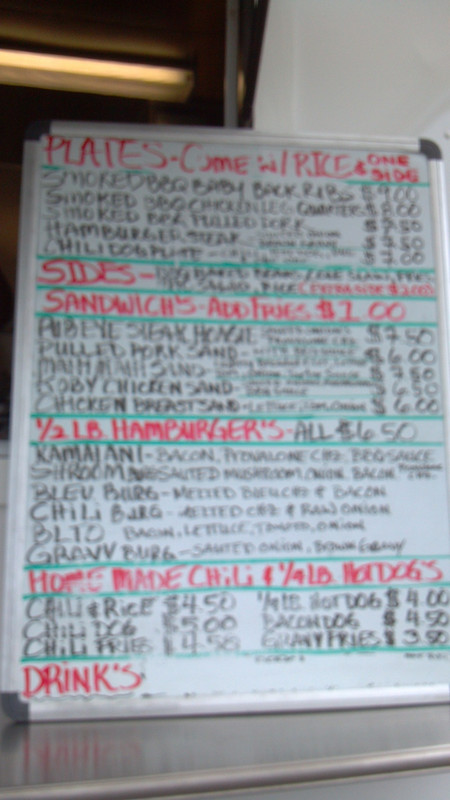 PLATES - Come w/ RICE & ONE SIDE
SMOKED BBQ BABY BACK RIBS $9.00
SMOKED BBQ CHICKEN LEG QUARTERS $8.00
SMOKED BBQ PULLED PORK $7.50
HAMBURGER STEAK - $7.50
CHILI DOG PLATE - $7.00
SIDES - BBQ BAKED BEANS / COLE SLAW / FRIES
SALAD, RICE (EXTRA SIDE $2.00)
SANDWICH'S - ADD FRIES $1.00
POPEYE STEAK HOAGIE $7.50
PULLED PORK SAND - $6.00
MAHI MAHI SAND - $7.50
KOBY CHICKEN SAND - $6.50
CHICKEN BREAST SAND - LETTUCE, TOM, ONION $6.00
1/2 LB. HAMBURGER'S - ALL $6.50
KAMA'AINA - BACON, PROVALONE CHZ, BBQ SAUCE
SHROOM - SAUTED MUSHROOM, ONION, BACON
BLEU BURG - MELTED BLEU CHZ & BACON
CHILI BURG - MELTED CHZ & RAW ONION
BLTO BACON, LETTUCE, TOMATO, ONION
GRAVY BURG - SAUTED ONION, BROWN GRAVY
HOME MADE CHILI & 1/4 LB. HOTDOG'S
CHILI & RICE $4.50 1/4 LB. HOTDOG $4.00
CHILI DOG $5.00 BACON DOG $4.50
CHILI FRIES $4.50 GRAVY FRIES $3.50
DRINK'S